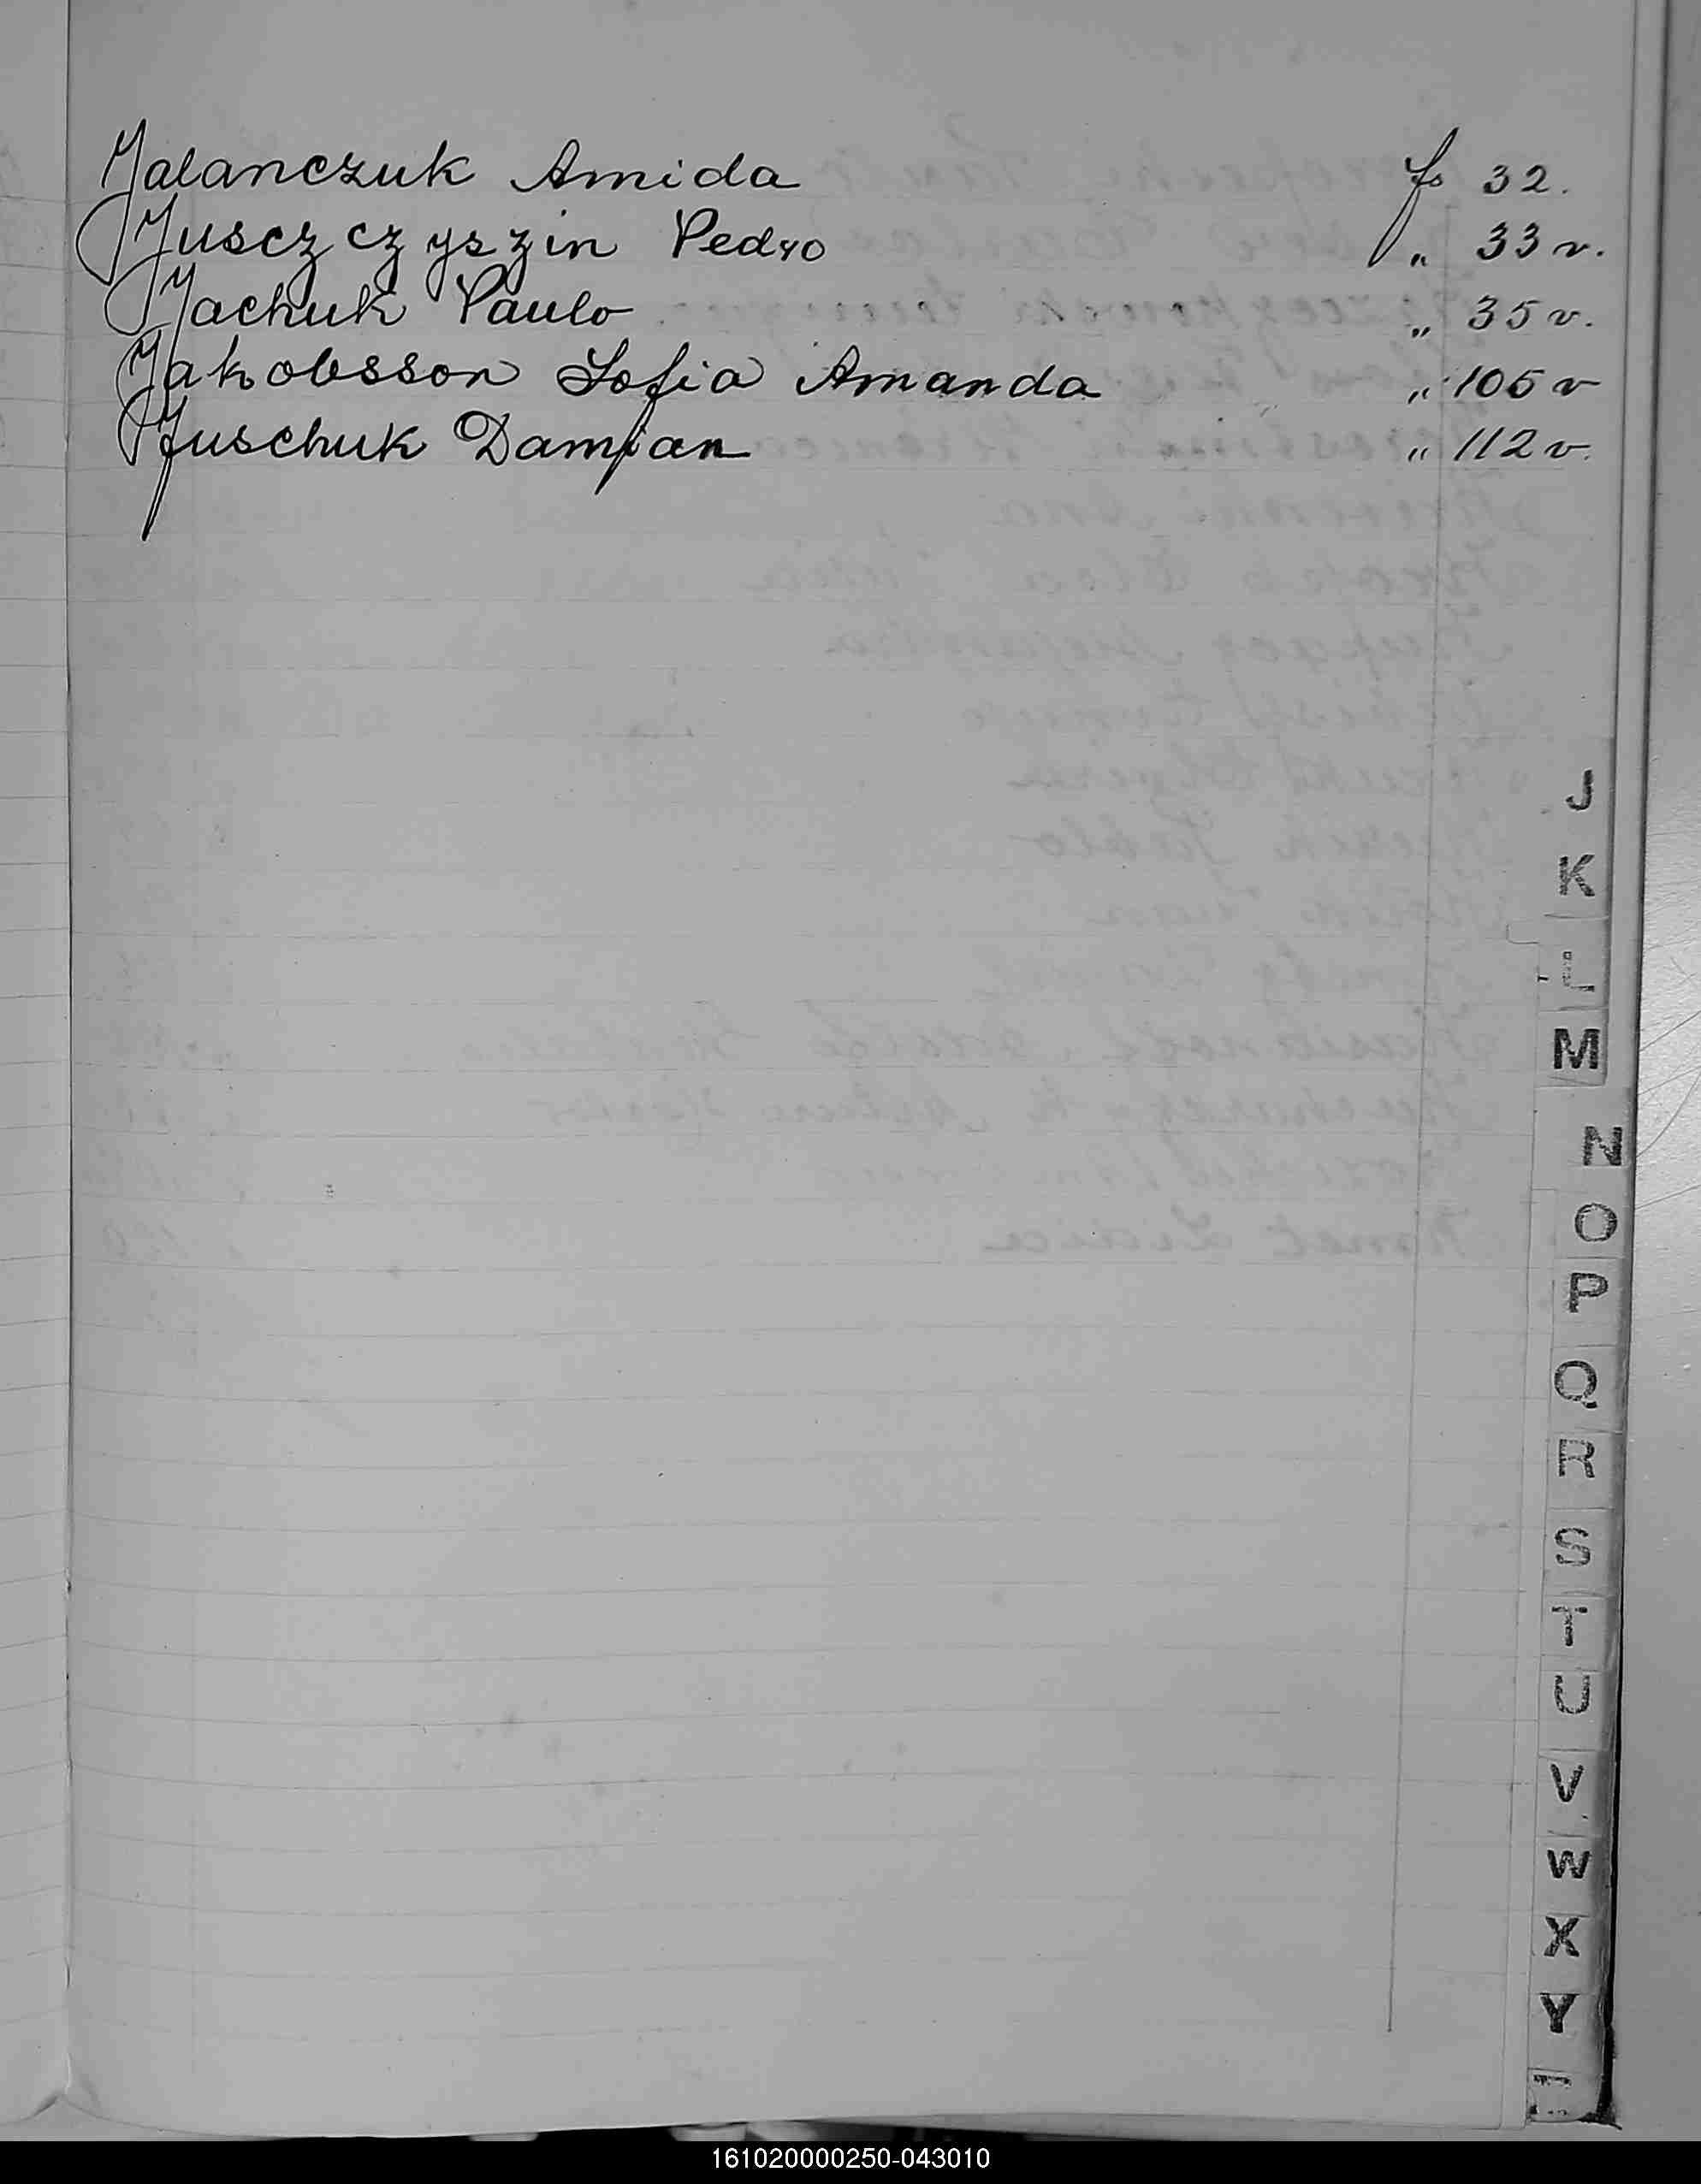 Jalanczuk Amida fs 32.
Jusczczyszin Pedro " 33 v.
Jachuk Paulo " 35 v.
Jakobsson Sofia Amanda " 105 v
Juschuk Damjan " 112 v.
J
K
L
M
N
O
P
Q
R
S
T
U
V
W
X
Y
161020000250-043010